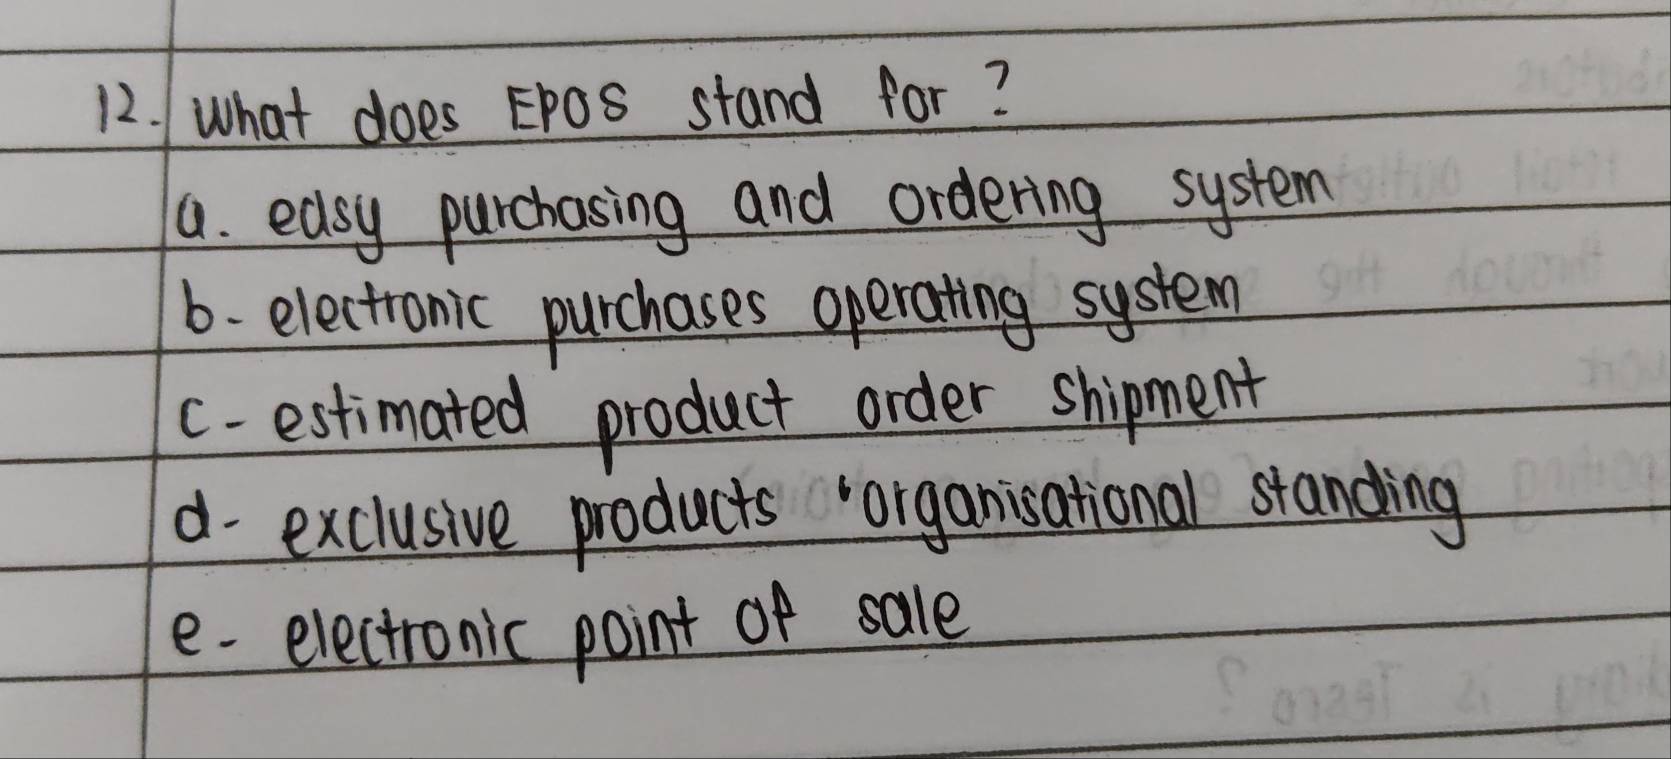 12. What does EPOS stand for?
a. easy purchasing and ordering system
b- electronic purchases operating system
c- estimated product order shipment
d- exclusive products organisational standing
e- electronic point of sale